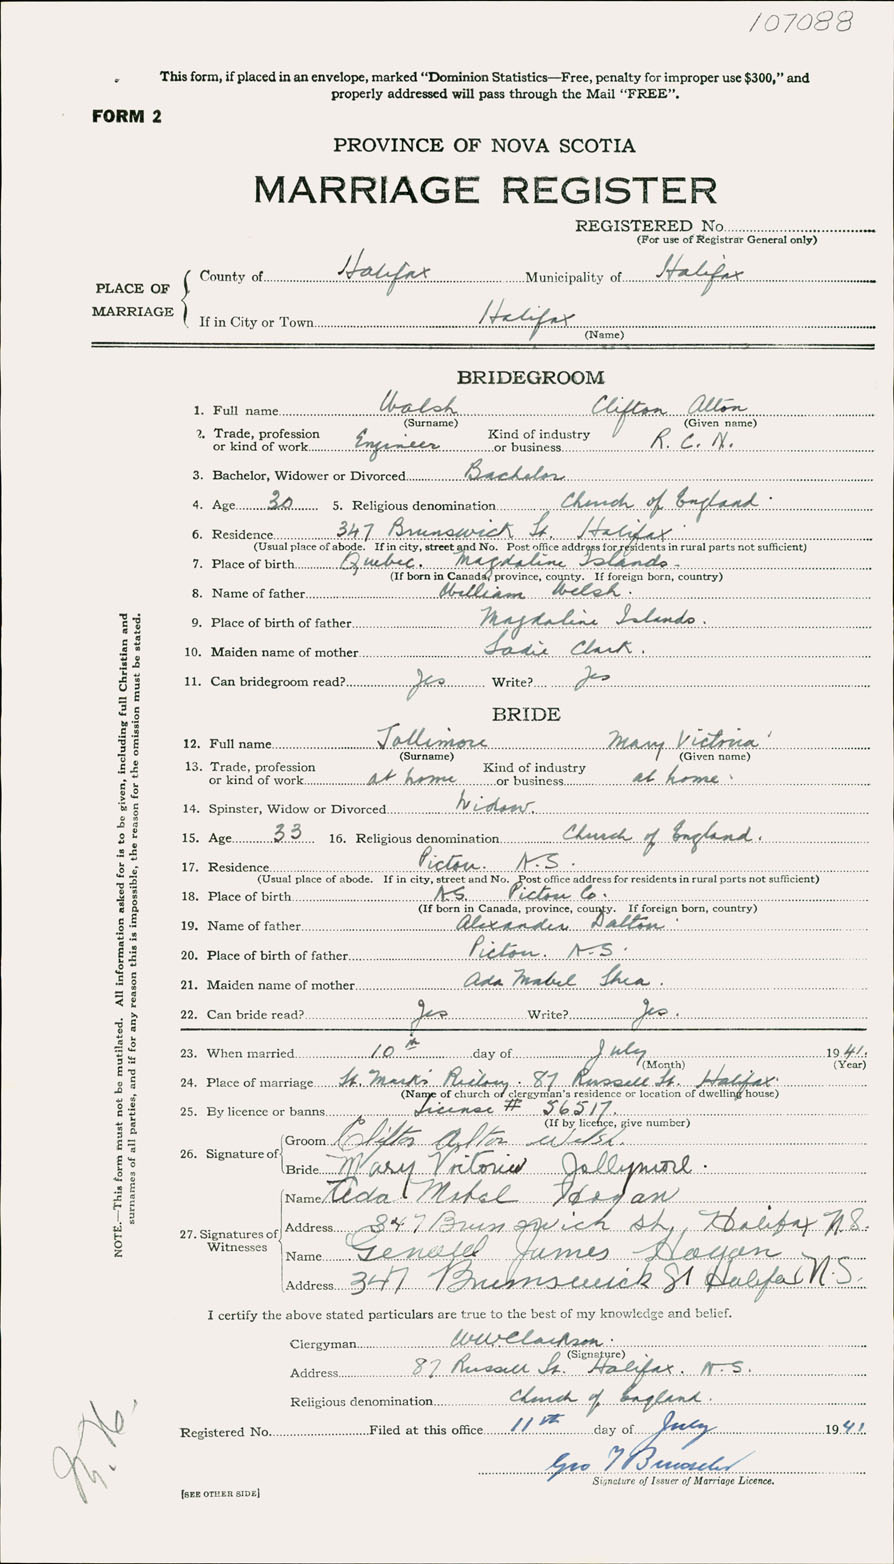 107088
This form, if placed in an envelope, marked "Dominion Statistics—Free, penalty for improper use $300," and
properly addressed will pass through the Mail "FREE".
FORM 2
PROVINCE OF NOVA SCOTIA
MARRIAGE REGISTER
REGISTERED No.
(For use of Registrar General only)
PLACE OF MARRIAGE
County of Halifax Municipality of Halifax
If in City or Town Halifax
(Name)
BRIDEGROOM
1. Full name Walsh Clifton Alton
(Surname) (Given name)
2. Trade, profession or kind of work Engineer Kind of industry or business R. C. N.
3. Bachelor, Widower or Divorced Bachelor
4. Age 30 5. Religious denomination Church of England
6. Residence 347 Brunswick St. Halifax
(Usual place of abode. If in city, street and No. Post office address for residents in rural parts not sufficient)
7. Place of birth Quebec. Magdaline Islands
(If born in Canada, province, county. If foreign born, country)
8. Name of father William Welsh.
9. Place of birth of father Magdaline Islands.
10. Maiden name of mother Sadie Clark.
11. Can bridegroom read? Yes Write? Yes
BRIDE
12. Full name Jollimore Mary Victoria
(Surname) (Given name)
13. Trade, profession or kind of work at home Kind of industry or business at home
14. Spinster, Widow or Divorced Widow.
15. Age 33 16. Religious denomination Church of England.
17. Residence Pictou. N.S.
(Usual place of abode. If in city, street and No. Post office address for residents in rural parts not sufficient)
18. Place of birth N.S. Pictou Co.
(If born in Canada, province, county. If foreign born, country)
19. Name of father Alexander Dalton
20. Place of birth of father Pictou. N.S.
21. Maiden name of mother Ada Mabel Shea.
22. Can bride read? Yes Write? Yes.
23. When married 10th day of July 1941.
(Month) (Year)
24. Place of marriage St. Mark's Rectory. 87 Russell St. Halifax
(Name of church or clergyman's residence or location of dwelling house)
25. By licence or banns License # 56517.
(If by licence, give number)
26. Signature of
Groom Clifton Alton Welsh.
Bride Mary Victoria Jollymore.
27. Signatures of Witnesses
Name Ada Mabel Hogan
Address 347 Brunswick St, Halifax N.S.
Name James Hogan
Address 347 Brunswick St Halifax N.S.
I certify the above stated particulars are true to the best of my knowledge and belief.
Clergyman WW Clarkson.
(Signature)
Address 87 Russell St. Halifax. N.S.
Religious denomination Church of England.
Registered No. Filed at this office 11th day of July 1941
Geo
Signature of Issuer of Marriage Licence.
[SEE OTHER SIDE]
NOTE.—This form must not be mutilated. All information asked for is to be given, including full Christian and
surnames of all parties, and if for any reason this is impossible, the reason for the omission must be stated.